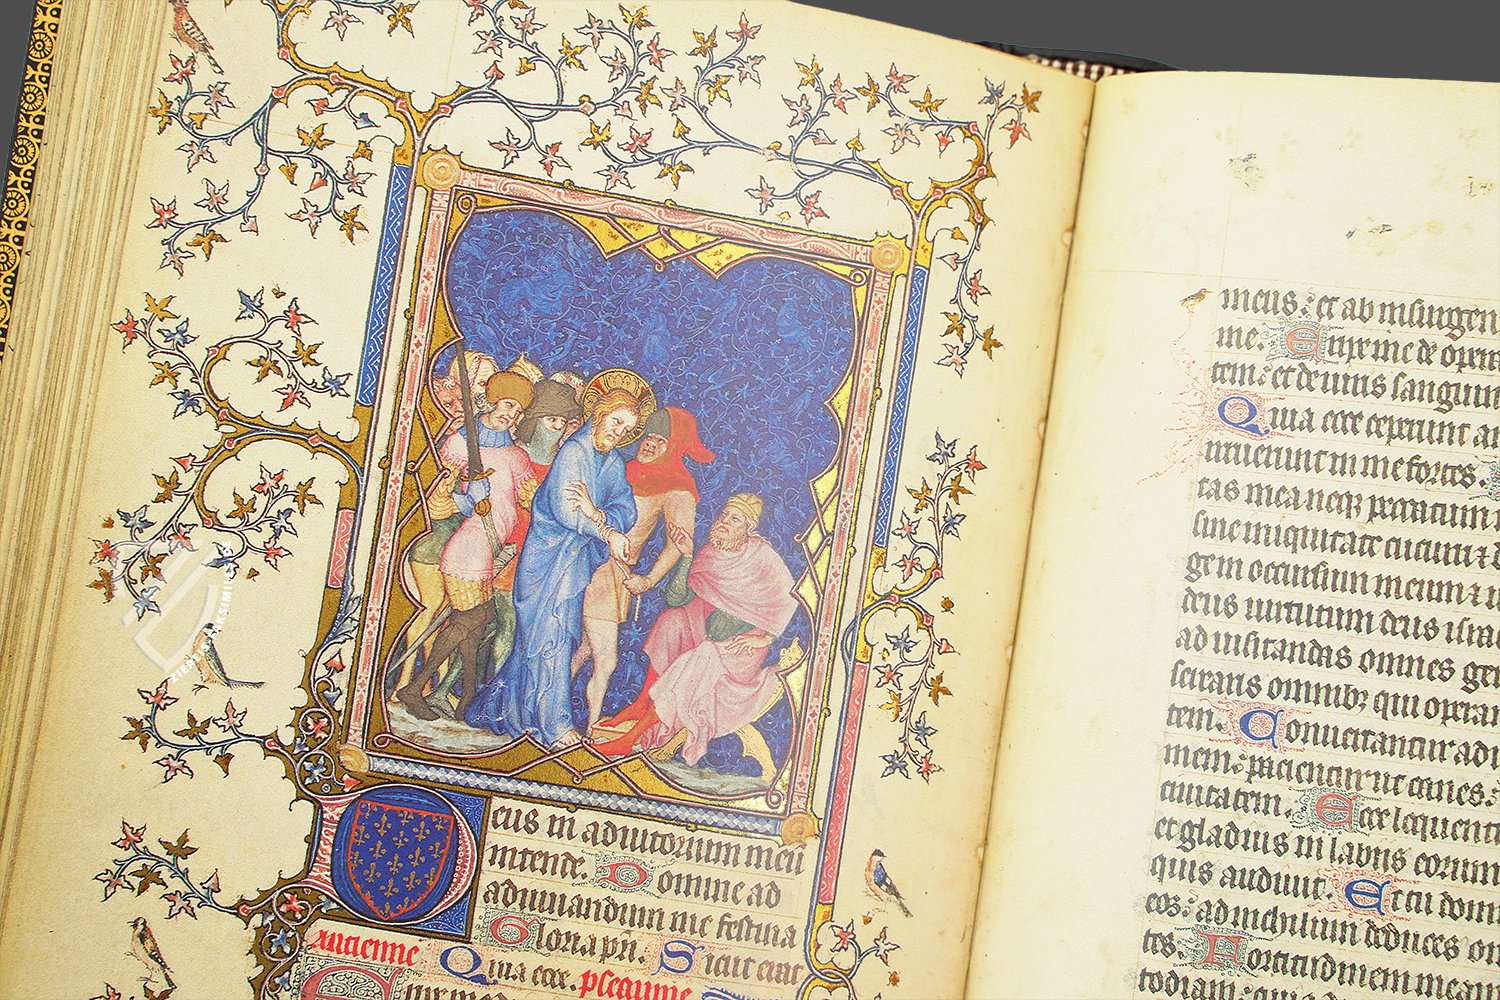 eus in adiutorium meu
intende. Domine ad
adiuuandum me festina
Gloria pri. Sicut erat
Antienne Quia ecce. pseaume
meus: et ab insurgen
me. Eripe me de opera
tem: et de uiris sanguin
Quia ecce ceperunt a
irruerunt in me fortes.
tas mea neqz peccatum
sine iniquitate cucurri z d
gem occursum meum z u
deus uirtutum deus isra
ad uisitandas omnes gen
seraris omnibz qui operan
tem. Conuertantur ad u
mem: pacientur ut canes:
ciuitatem. Ecce loquentu
et gladius in labiis eorum
quis audiuit. Et tu domi
eos: ad nichilum deduces om
tes. Fortitudinem meam
ZIEREIS FACSIMILES